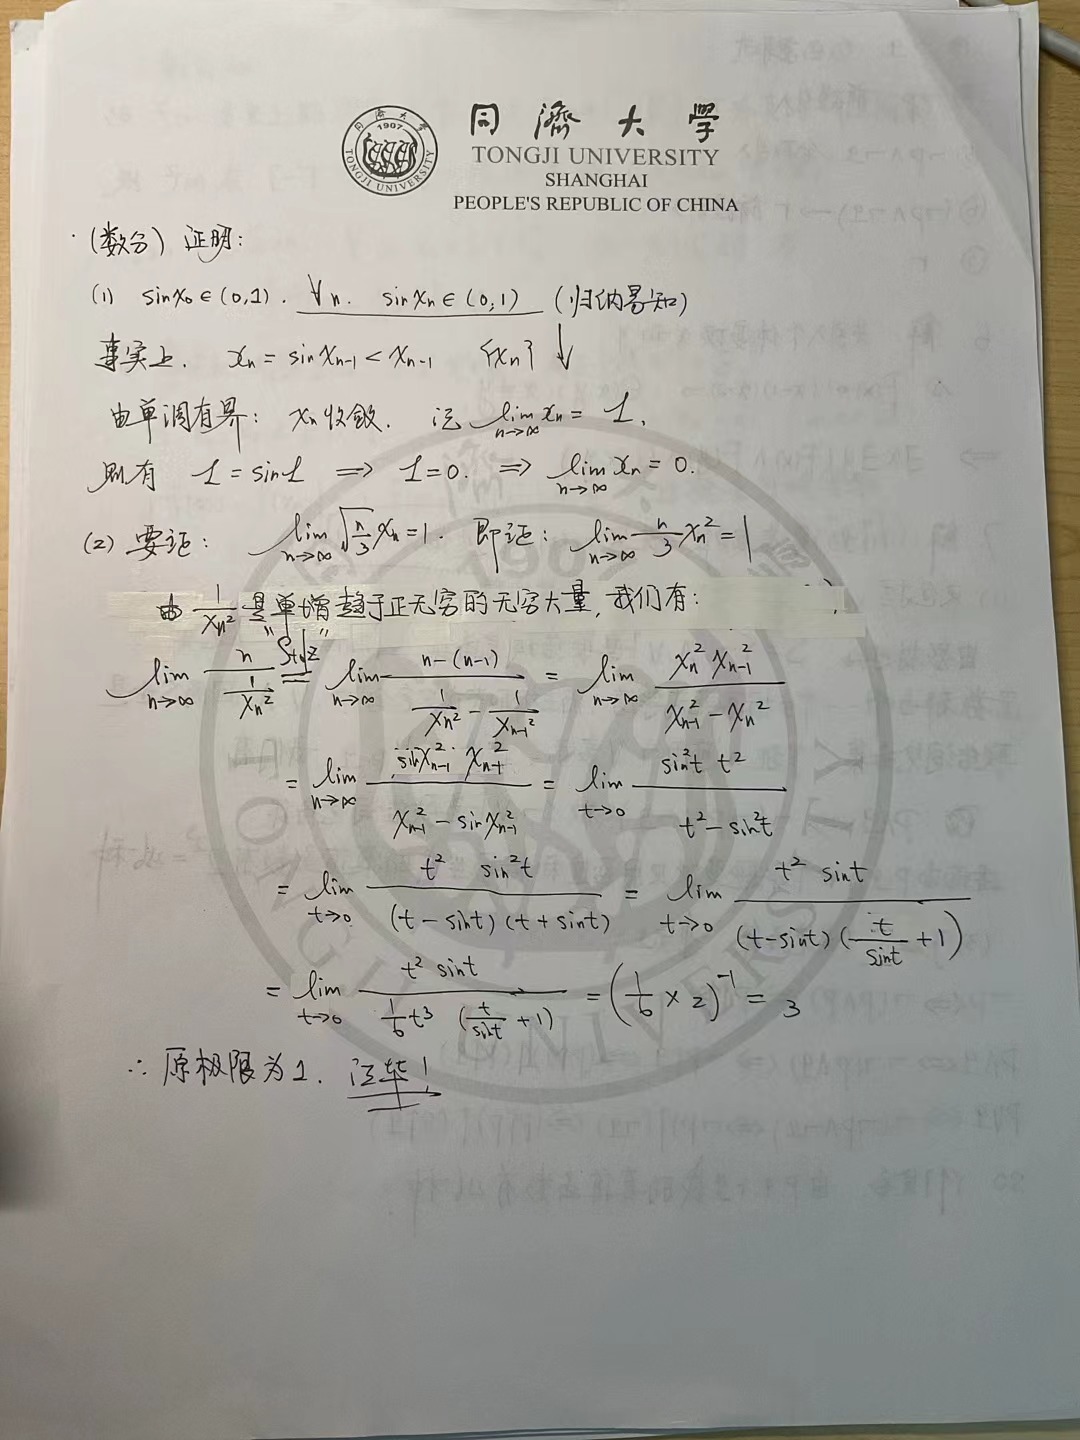 同濟大學
TONGJI UNIVERSITY
SHANGHAI
PEOPLE'S REPUBLIC OF CHINA
(数分) 证明:
(1) sinx₀∈(0,1). ∀n. sinxₙ∈(0,1) (归纳易知)
事实上. xₙ = sinxₙ₋₁ < xₙ₋₁ {xₙ}↓
由单调有界: xₙ收敛. 记 lim_{n→∞} xₙ = 1.
则有 1 = sin1 ⟹ 1=0. ⟹ lim_{n→∞} xₙ = 0.
(2) 要证: lim_{n→∞} √(n/3) xₙ = 1. 即证: lim_{n→∞} n/3 xₙ² = 1
由 1/xₙ² 是单增趋于正无穷的无穷大量, 我们有:
lim_{n→∞} n/(1/xₙ²) "Stolz" = lim_{n→∞} (n-(n-1))/(1/xₙ² - 1/xₙ₋₁²) = lim_{n→∞} (xₙ² xₙ₋₁²)/(xₙ₋₁² - xₙ²)
= lim_{n→∞} (sinxₙ₋₁² xₙ₋₁²)/(xₙ₋₁² - sinxₙ₋₁²) = lim_{t→0} (sin²t t²)/(t² - sin²t)
= lim_{t→0} (t² sin²t)/((t-sint)(t+sint)) = lim_{t→0} (t² sint)/((t-sint)(t/sint + 1))
= lim_{t→0} (t² sint)/(1/6 t³ (t/sint + 1)) = (1/6 × 2)⁻¹ = 3
∴ 原极限为1. 证毕!